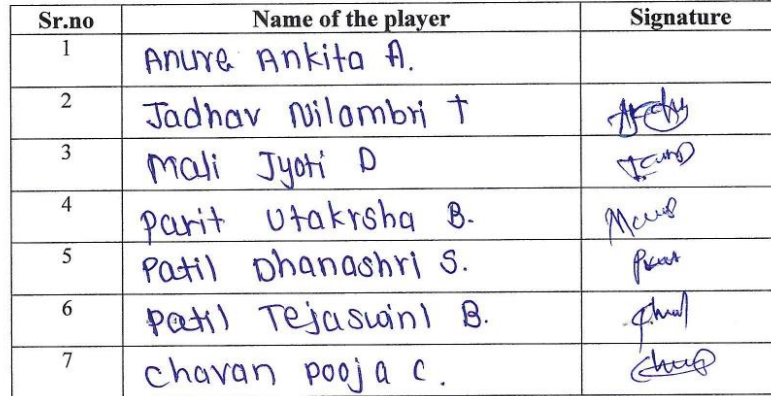 Sr.no Name of the player Signature
1 Anure Ankita A.
2 Jadhav Nilambri T
3 Mali Jyoti D
4 Parit Utakrsha B.
5 Patil Dhanashri S.
6 Patil Tejaswini B.
7 Chavan Pooja C.